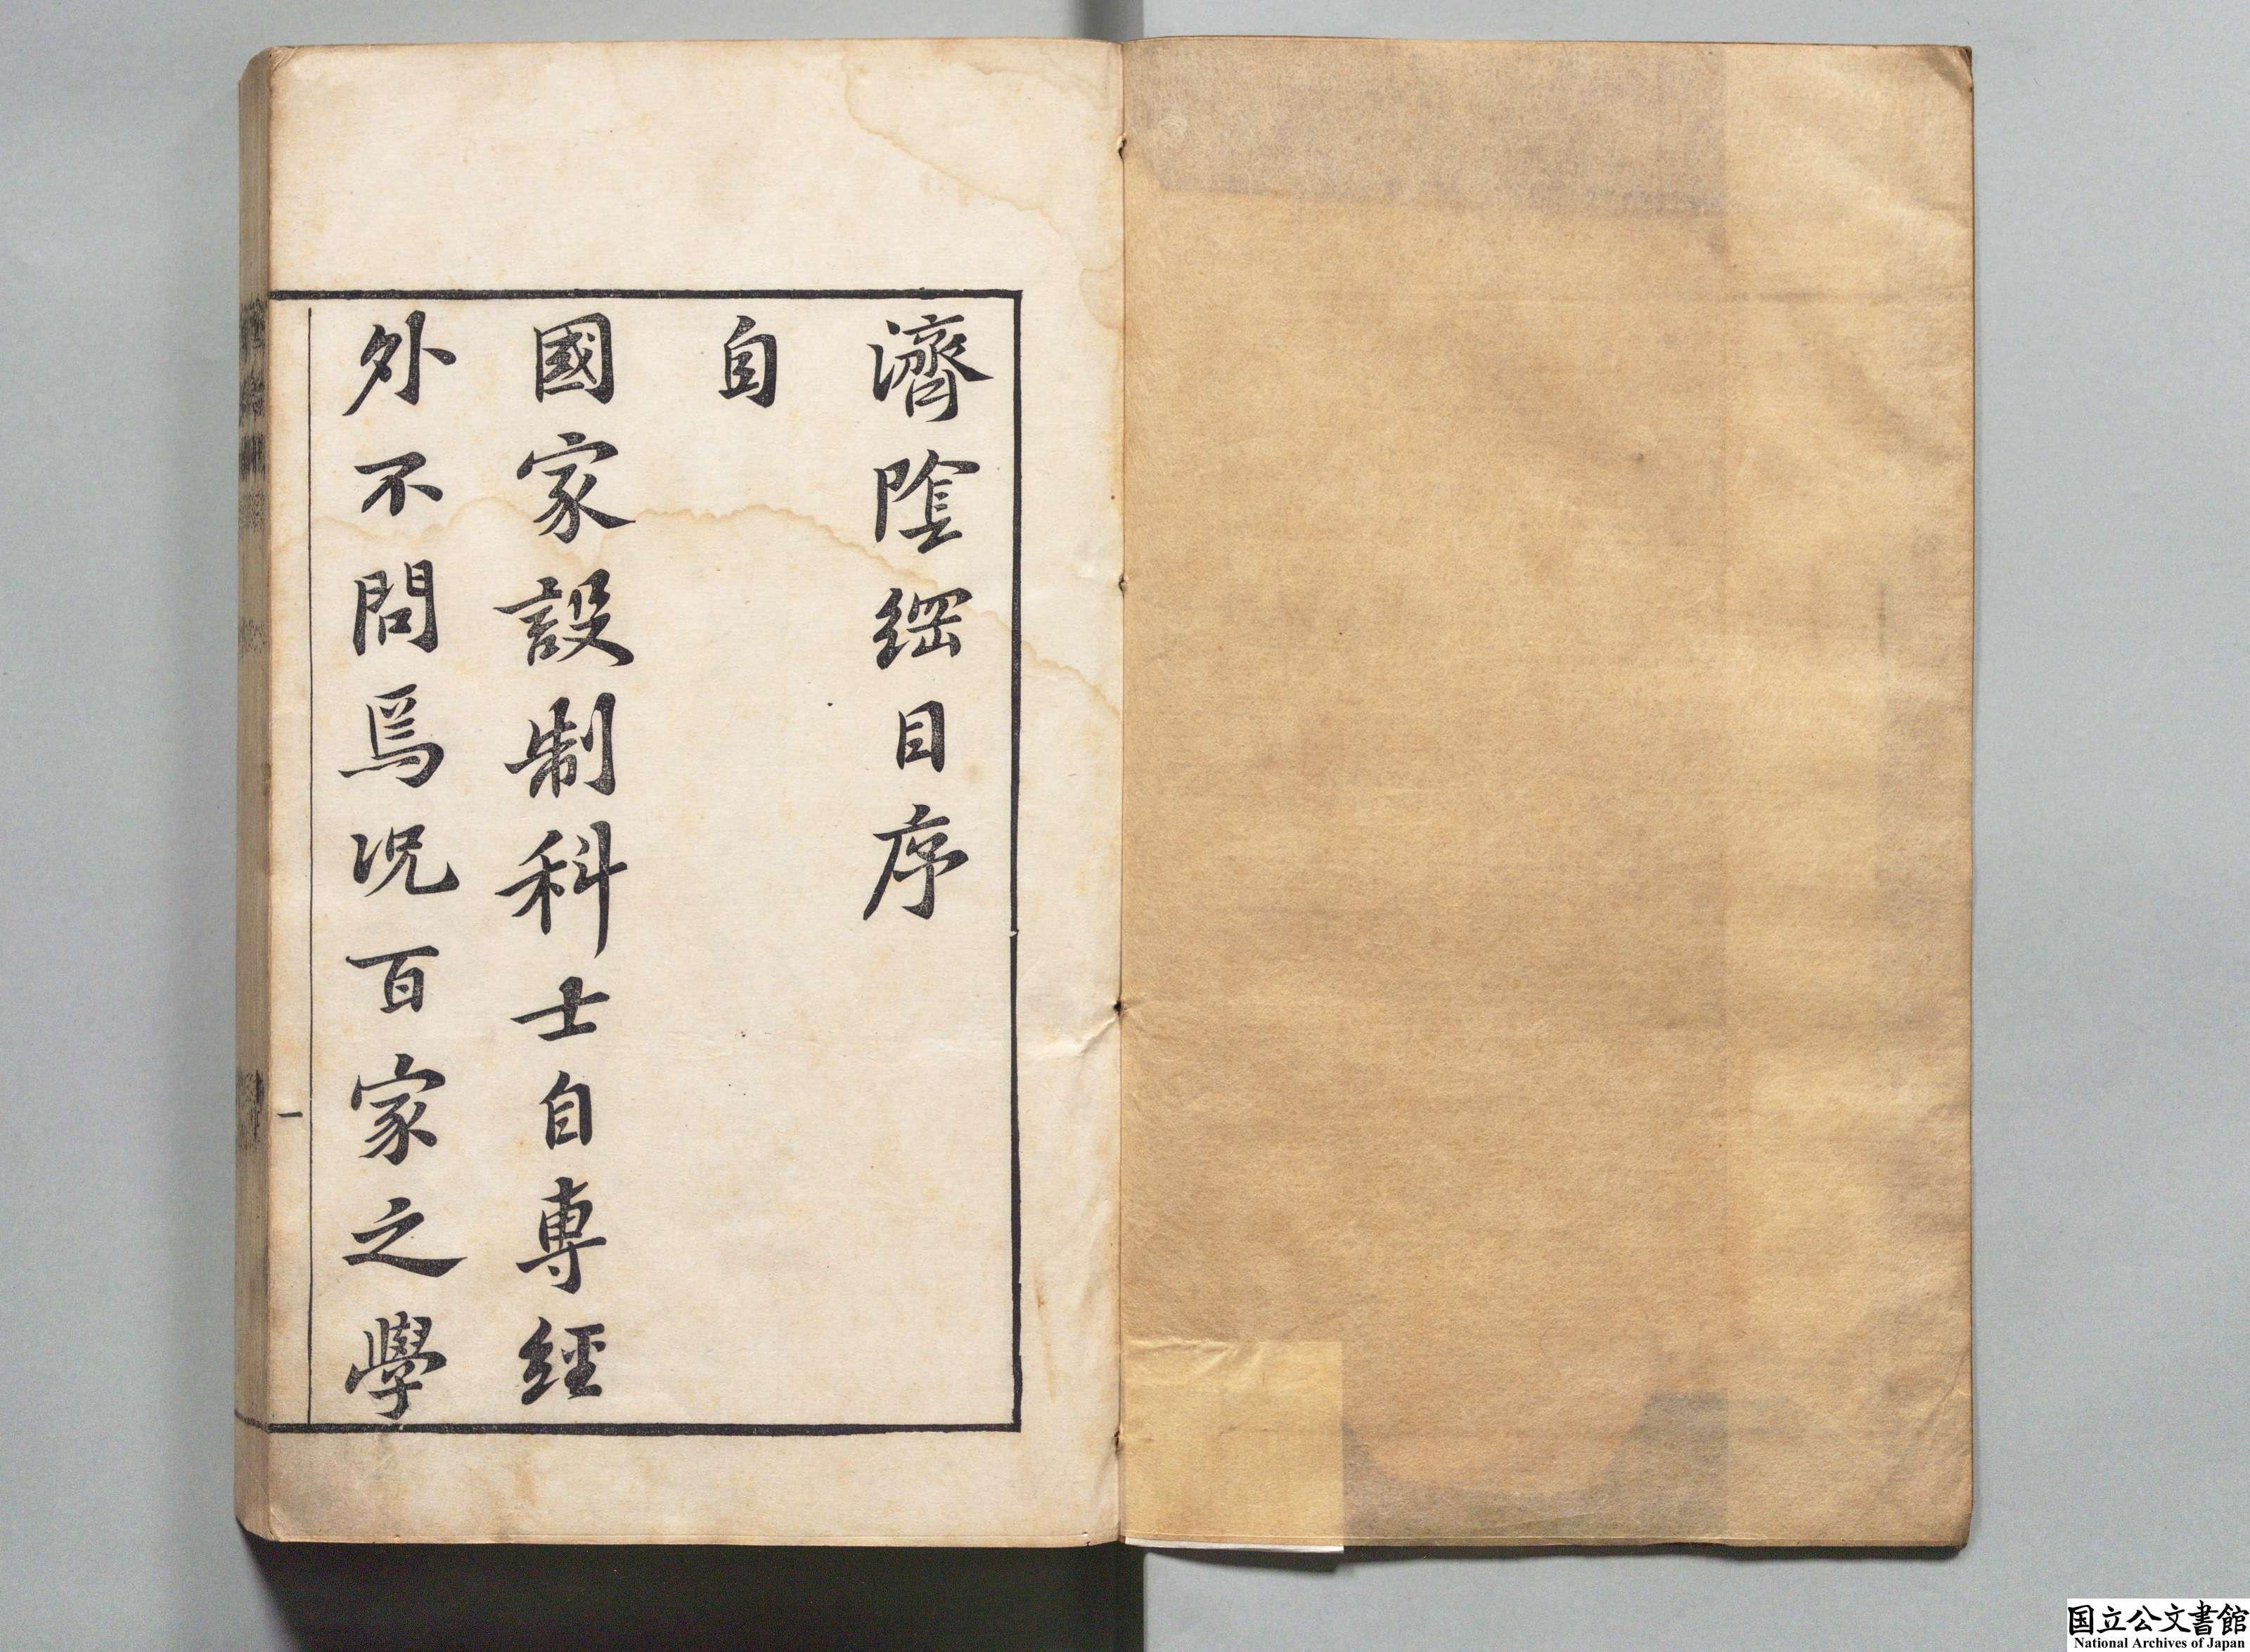 濟陰綱目序
自
國家設制科士自專經
外不問焉况百家之學
一
国立公文書館
National Archives of Japan